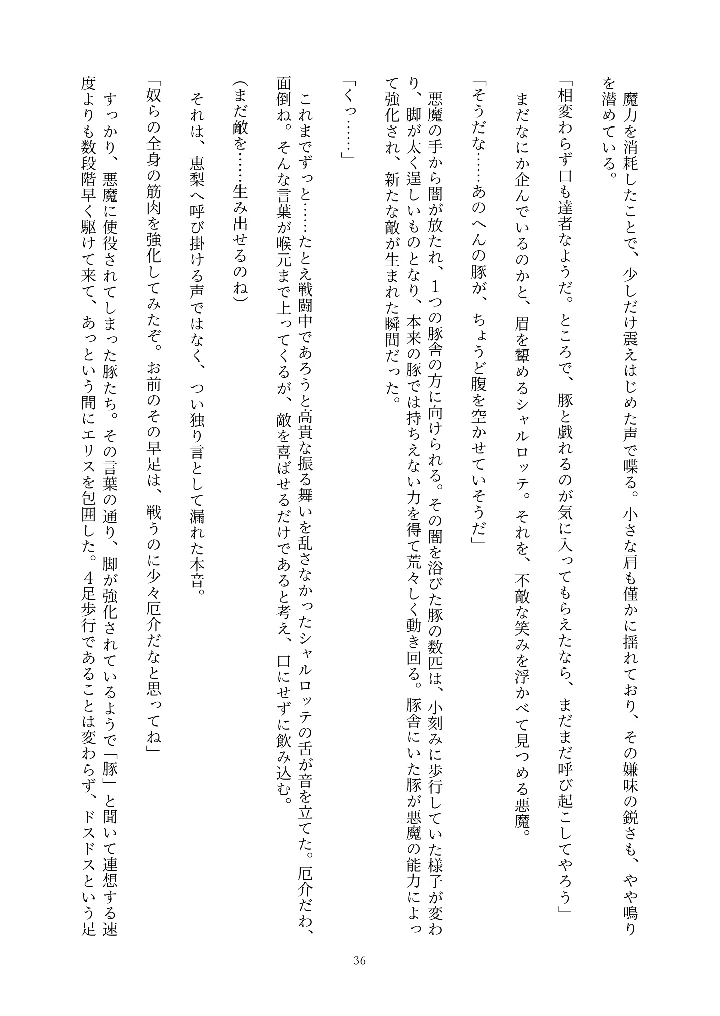 魔力を消耗したことで、少しだけ震えはじめた声で喋る。小さな肩も僅かに揺れており、その嫌味の鋭さも、やや鳴り
を潜めている。
「相変わらず口も達者なようだ。ところで、豚と戯れるのが気に入ってもらえたなら、まだまだ呼び起こしてやろう」
　まだなにか企んでいるのかと、眉を顰めるシャルロッテ。それを、不敵な笑みを浮かべて見つめる悪魔。
「そうだな……あのへんの豚が、ちょうど腹を空かせていそうだ」
　悪魔の手から闇が放たれ、１つの豚舎の方に向けられる。その闇を浴びた豚の数匹は、小刻みに歩行していた様子が変わ
り、脚が太く逞しいものとなり、本来の豚では持ちえない力を得て荒々しく動き回る。豚舎にいた豚が悪魔の能力によっ
て強化され、新たな敵が生まれた瞬間だった。
「くっ……」
　これまでずっと……たとえ戦闘中であろうと高貴な振る舞いを乱さなかったシャルロッテの舌が音を立てた。厄介だわ、
面倒ね。そんな言葉が喉元まで上ってくるが、敵を喜ばせるだけであると考え、口にせずに飲み込む。
（まだ敵を……生み出せるのね）
　それは、恵梨へ呼び掛ける声ではなく、つい独り言として漏れた本音。
「奴らの全身の筋肉を強化してみたぞ。お前のその早足は、戦うのに少々厄介だなと思ってね」
　すっかり、悪魔に使役されてしまった豚たち。その言葉の通り、脚が強化されているようで「豚」と聞いて連想する速
度よりも数段階早く駆けて来て、あっという間にエリスを包囲した。４足歩行であることは変わらず、ドスドスという足
36